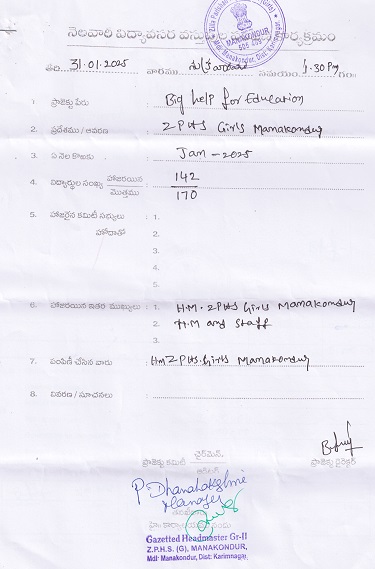 నెలవారి విద్యావసర వస్తువుల కార్యక్రమం
తేది 31.01.2025 వారము శుక్రవారం సమయం 4.30 PM గం
1. ప్రాజెక్టు పేరు : Big help for Education
2. ప్రదేశము / ఆవరణ : Z.P.H.S Girls Manakondur
3. ఏ నెల కొరకు : Jan - 2025
4. విద్యార్థుల సంఖ్య హాజరయిన 142
మొత్తము 170
5. హాజరైన కమిటీ సభ్యులు : 1.
హోదాతో 2.
3.
4.
5.
6. హాజరయిన ఇతర ముఖ్యులు : 1. H.M. ZPHS Girls Manakondur
2. H.M and Staff
3.
7. పంపిణీ చేసిన వారు : HM ZPHS. Girls Manakondur
8. వివరణ / సూచనలు :
ప్రాజెక్టు కమిటీ ఛైర్మెన్,
ప్రాజెక్టు డైరెక్టర్
P. Dhanalakshmi
Manager
Gazetted Headmaster Gr-II
Z.P.H.S. (G), MANAKONDUR,
Mdl: Manakondur, Dist: Karimnagar.
MANAKONDUR
505 469